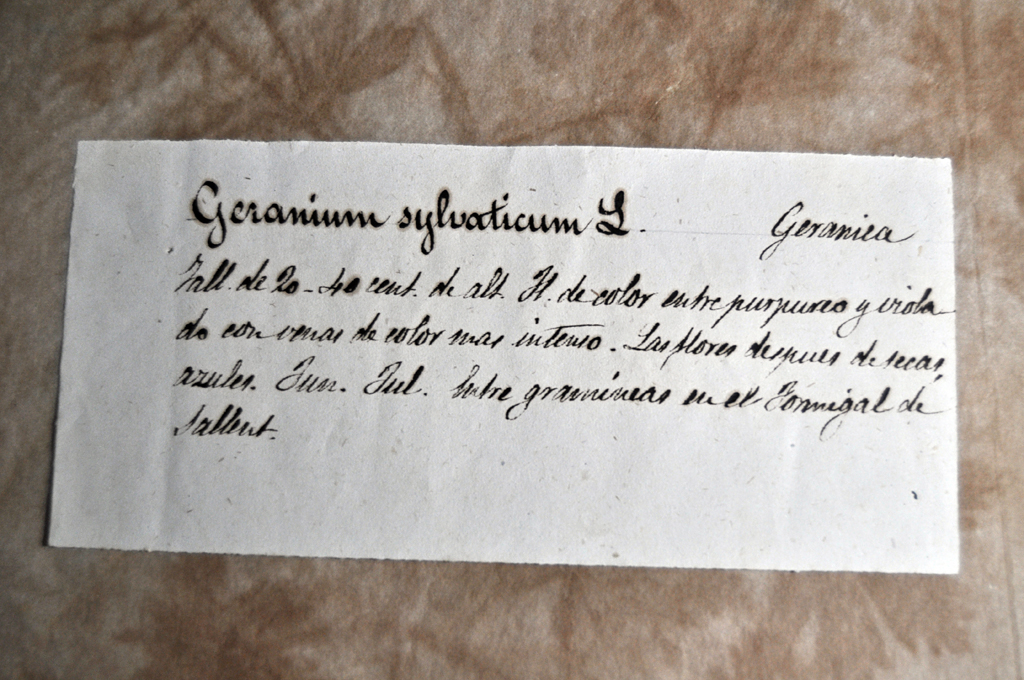 Geranium sylvaticum L. Geraniea
Tall. de 20-40 cent. de alt. Fl. de color entre purpureo y viola
do con venas de color mas intenso. Las flores despues de secas,
azules. Jun. Jul. Entre gramineas en el Formigal de
Sallent.